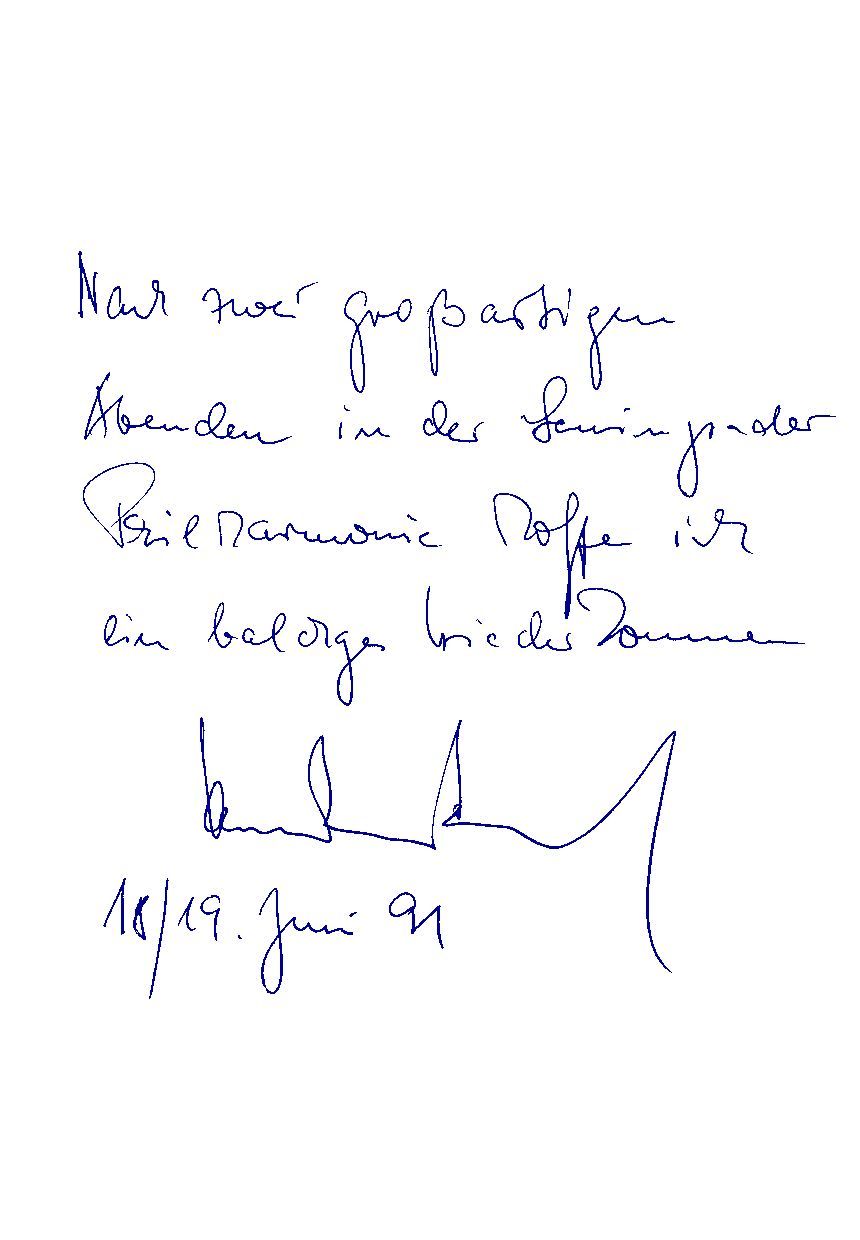 Nach zwei großartigen
Abenden in der Leningrader
Philharmonie hoffe ich
ein baldiges Wiederkommen
18/19. Juni 91